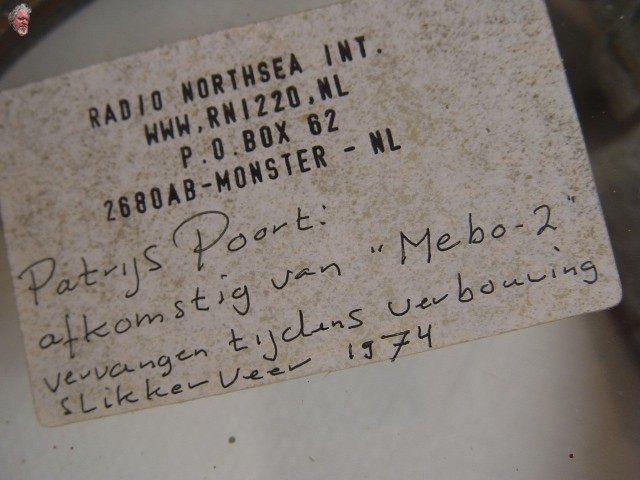 RADIO NORTHSEA INT.
WWW.RNI220.NL
P.O.BOX 62
2680AB-MONSTER - NL
Patrijs Poort:
afkomstig van "Mebo-2"
vervangen tijdens verbouwing
slikkerveer 1974